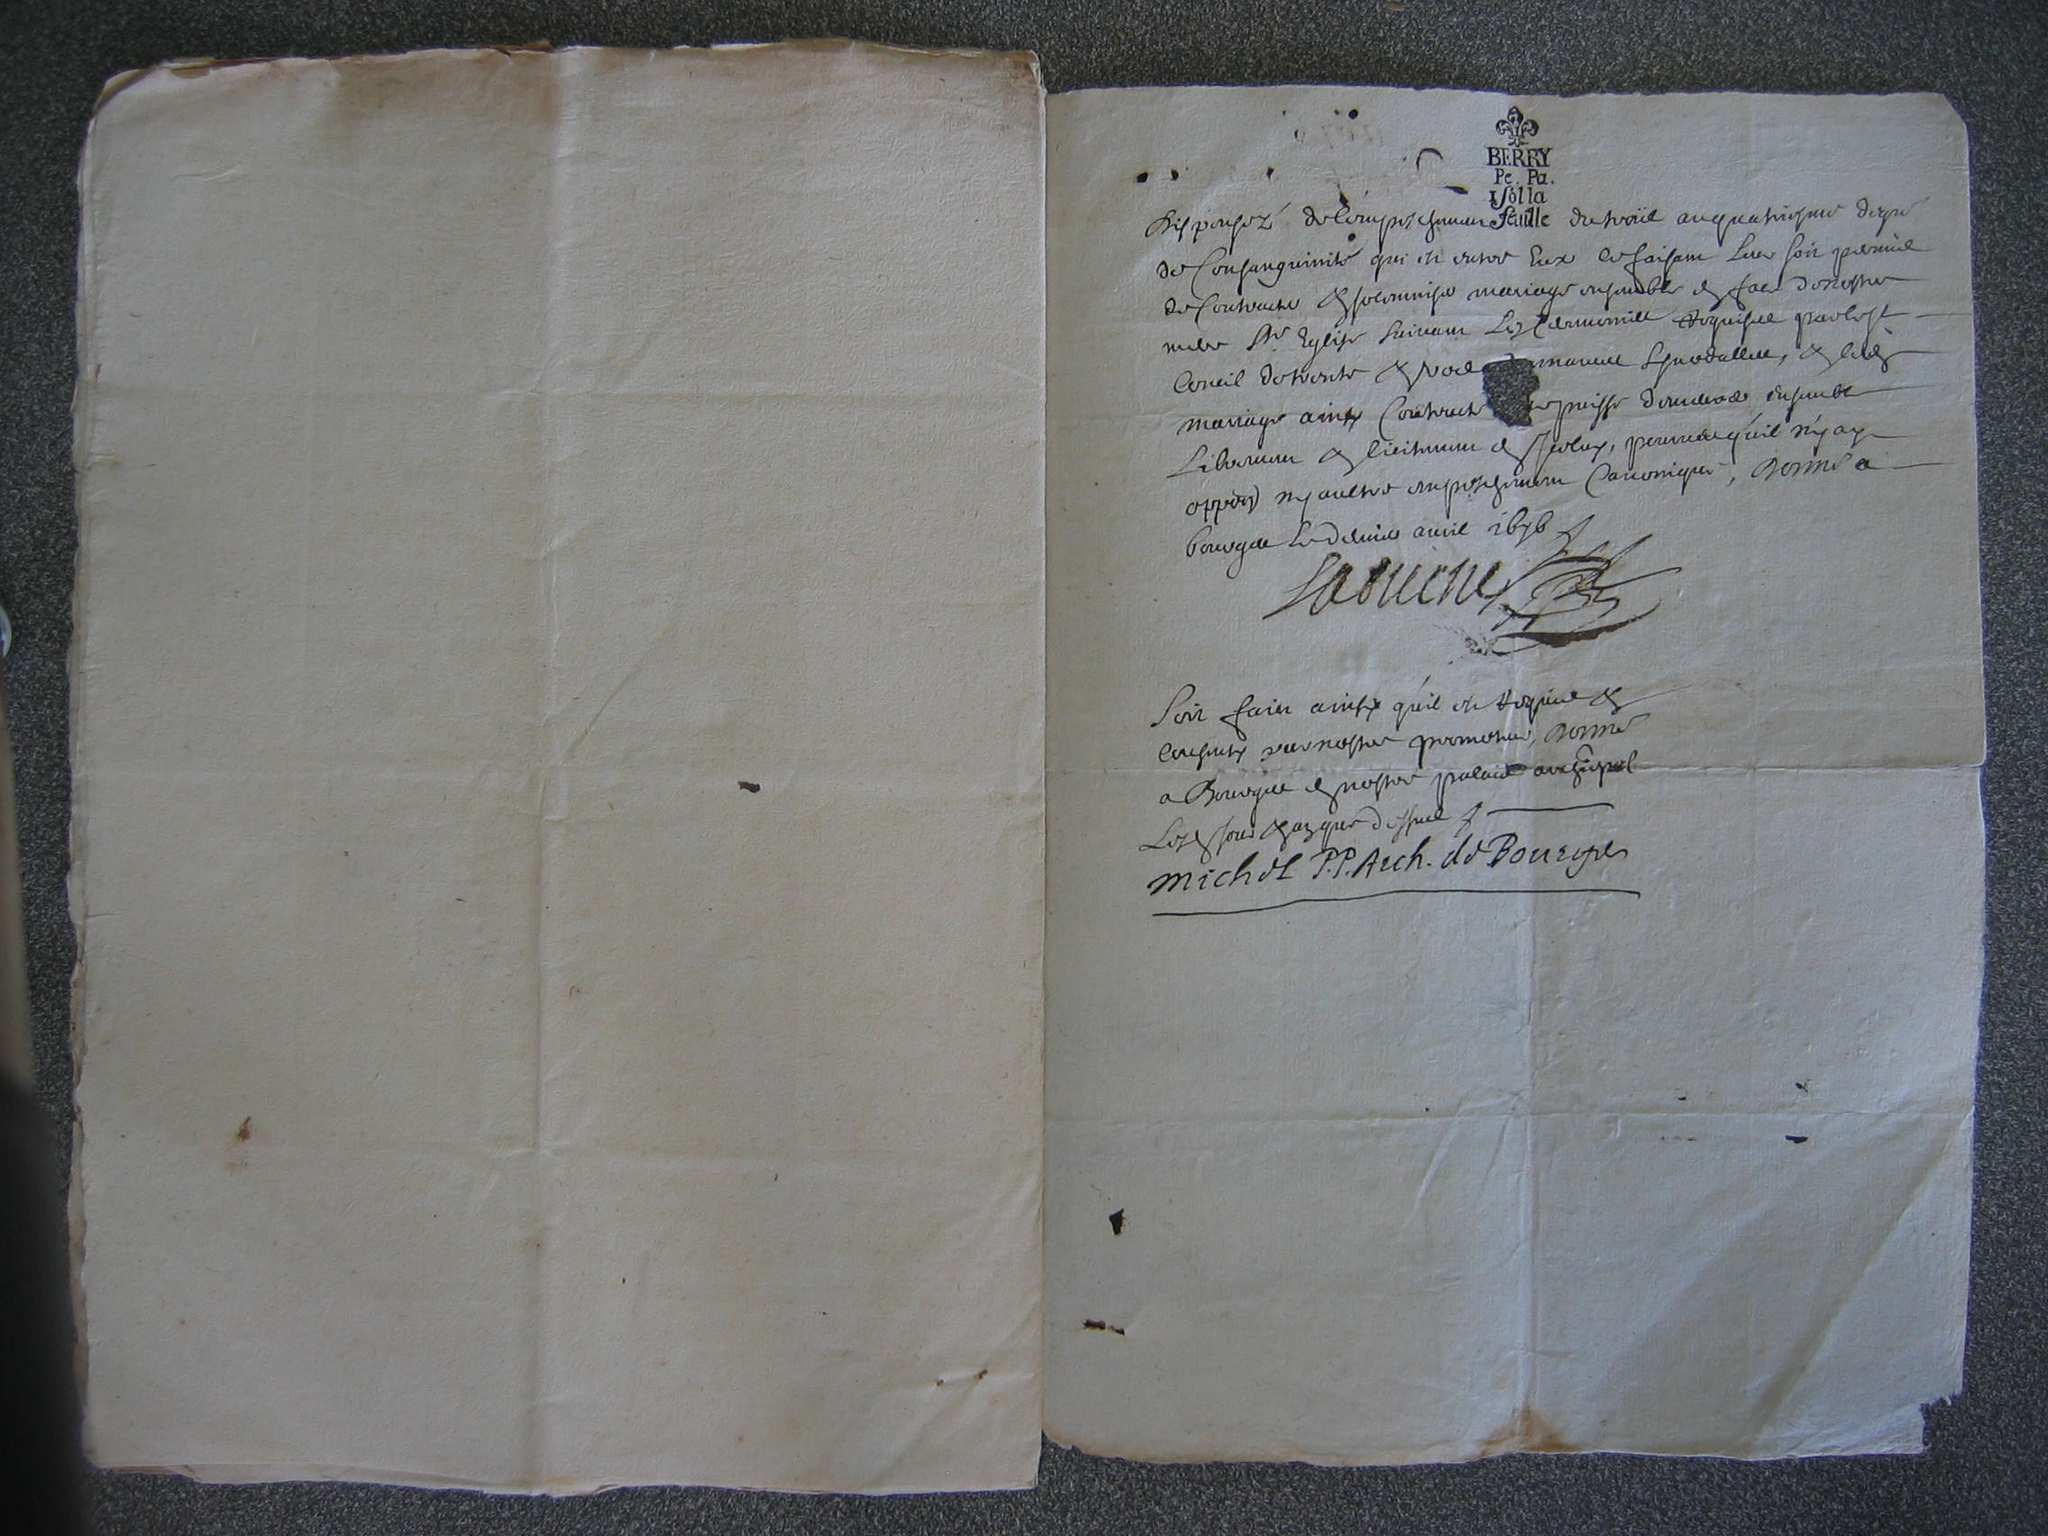 BERRY
Pe. Pa.
1 sol la
feuille
dispensez de l'empeschement du trois au quatriesme degré
de Consanguinité qui est entre Eux ce faisant Leur soit permis
de Contracter & solemniser mariage ensemble en face de nostre
mere Ste Eglise suivant Les Ceremonies requises par le st
Concil de trente & de
mariage ainsy Contracté puisse demeurer ensemble
Librement & licitement pourveu qu'il n'y ayt
oppoon ny aultre empeschement Canonique, donné a
bourges Le dernier avril 1676
Soit faict ainsy qu'il est requis &
consenty par nostre promoteur, donné
a Bourges en nostre palais archiepal
Les jour & an que dessus
michel P.P. Arch. de Bourges